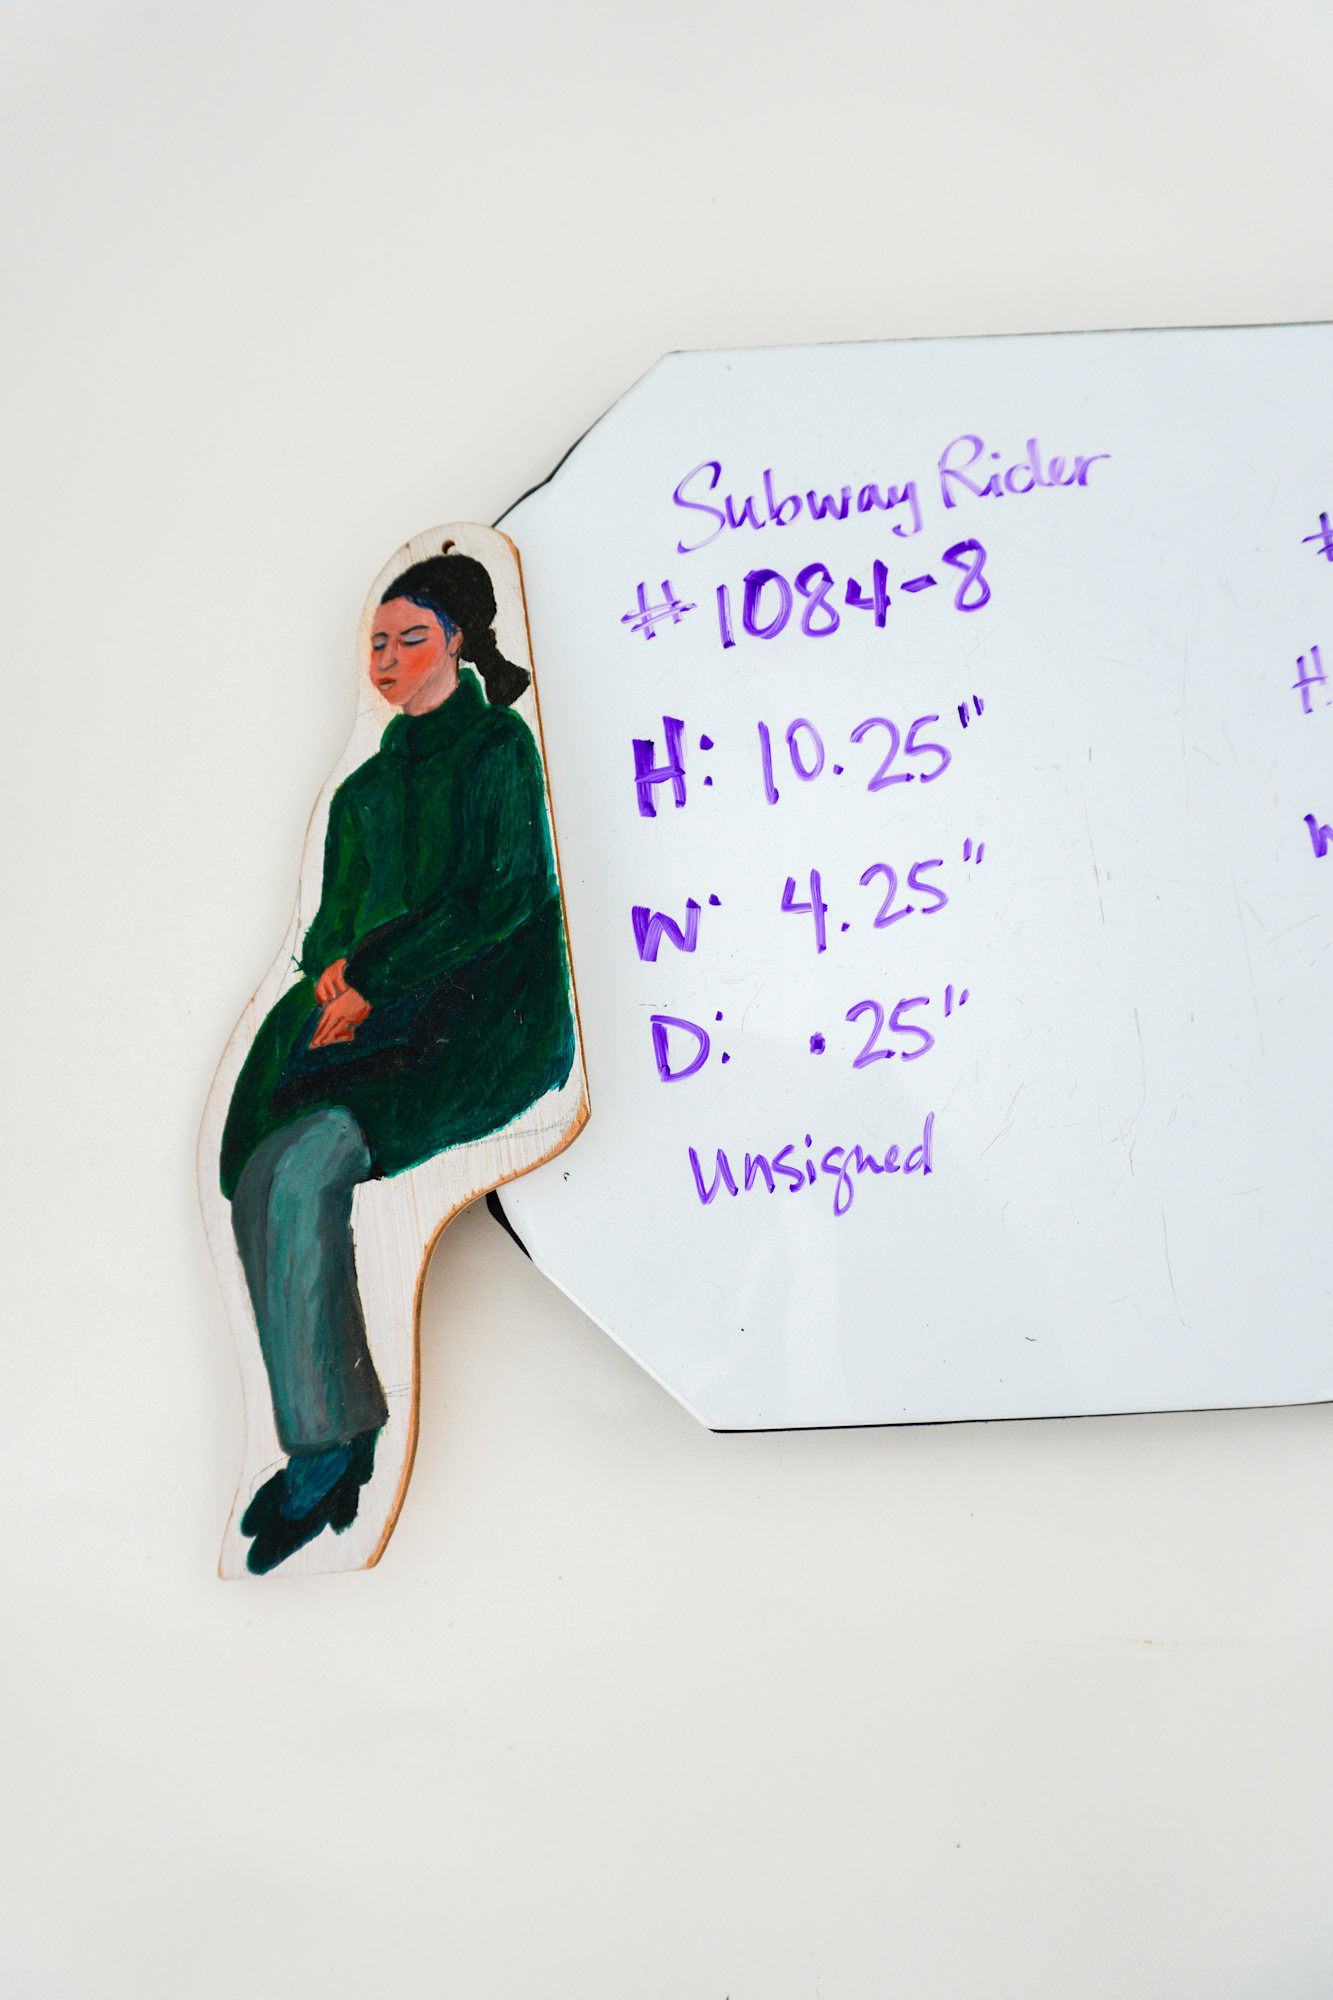 Subway Rider
#1084-8
H: 10.25"
W: 4.25"
D: .25"
Unsigned